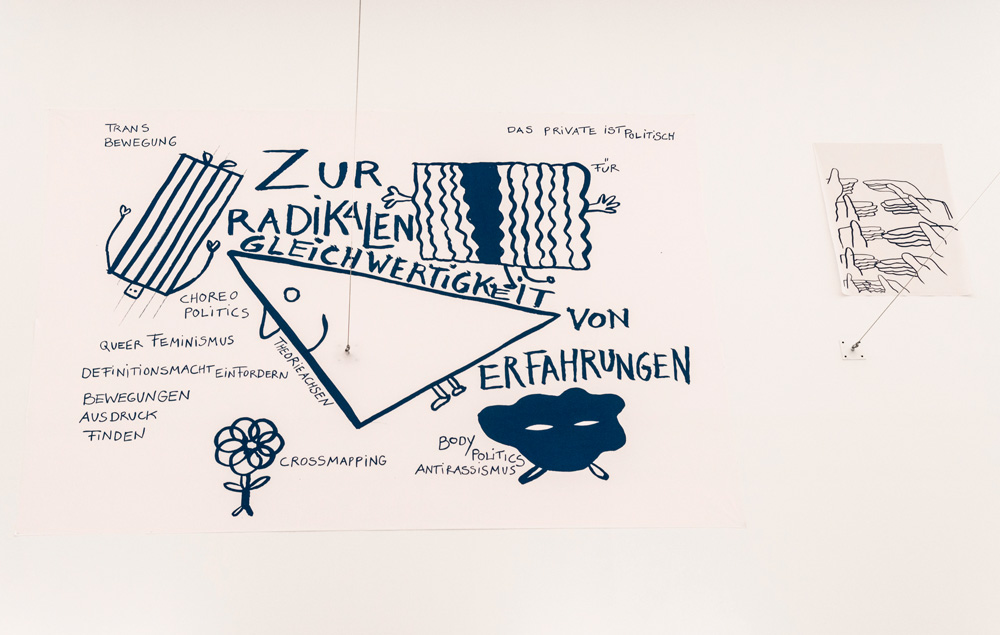 TRANS
BEWEGUNG
DAS PRIVATE IST POLITISCH
FÜR
ZUR
RADIKALEN
GLEICHWERTIGKEIT
VON
ERFAHRUNGEN
CHOREO
POLITICS
THEORIEACHSEN
QUEER FEMINISMUS
DEFINITIONSMACHT EINFORDERN
BEWEGUNGEN
AUSDRUCK
FINDEN
CROSSMAPPING
BODY
POLITICS
ANTIRASSISMUS